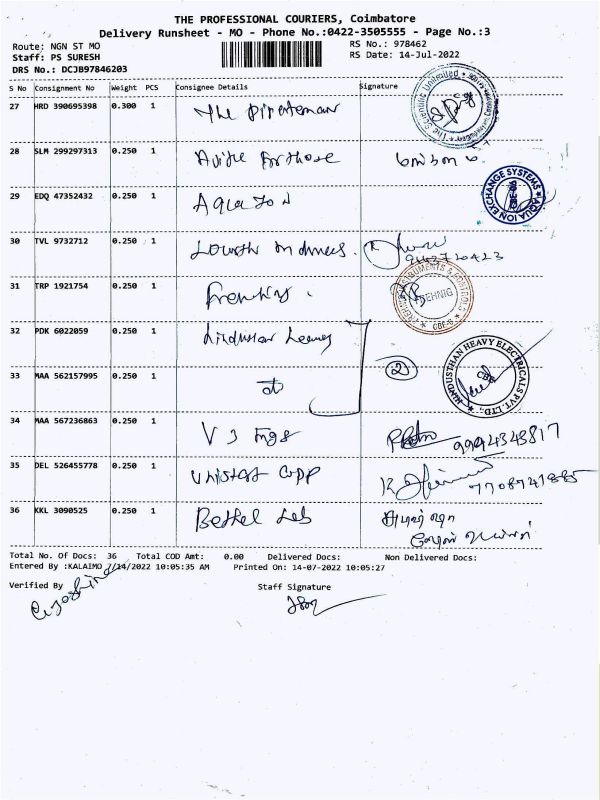 THE PROFESSIONAL COURIERS, Coimbatore
Delivery Runsheet - MO - Phone No.:0422-3505555 - Page No.:3
Route: NGN ST MO
Staff: PS SURESH
DRS No.: DCJB97846203
RS No.: 978462
RS Date: 14-Jul-2022
S No Consignment No Weight PCS Consignee Details Signature
27 HRD 390695398 0.300 1 The
The Scientific Unlimited
28 SLM 299297313 0.250 1
29 EDQ 47352432 0.250 1 Aqua Ion
AQUA ION EXCHANGE SYSTEMS
30 TVL 9732712 0.250 1
31 TRP 1921754 0.250 1
INSTRUMENTS & CONTROLS
CBE-6
32 PDK 6022059 0.250 1 Hindustan Heavy
33 MAA 562157995 0.250 1 do 2
HINDUSTHAN HEAVY ELECTRICALS PVT. LTD.,
CBE
34 MAA 567236863 0.250 1 V J Engs 9994343817
35 DEL 526455778 0.250 1
36 KKL 3090525 0.250 1 Bethel Lab
Total No. Of Docs: 36 Total COD Amt: 0.00 Delivered Docs: Non Delivered Docs:
Entered By :KALAIMO 7/14/2022 10:05:35 AM Printed On: 14-07-2022 10:05:27
Verified By
Staff Signature